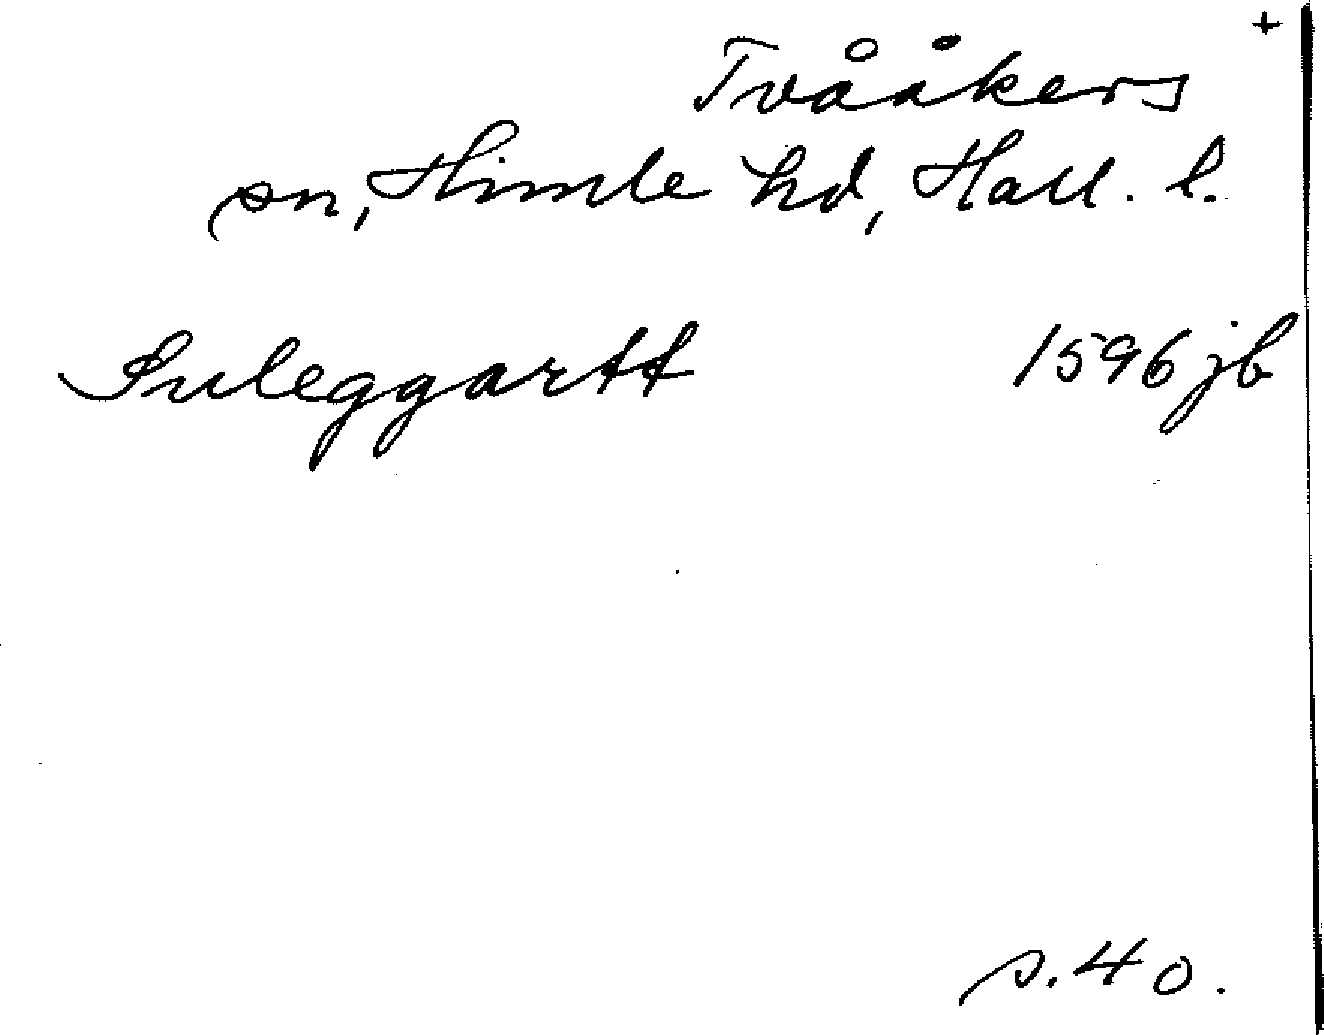 +
Tvååkers
sn, Himle hd, Hall. l.
Suleggartt 1596 jb
s. 40.